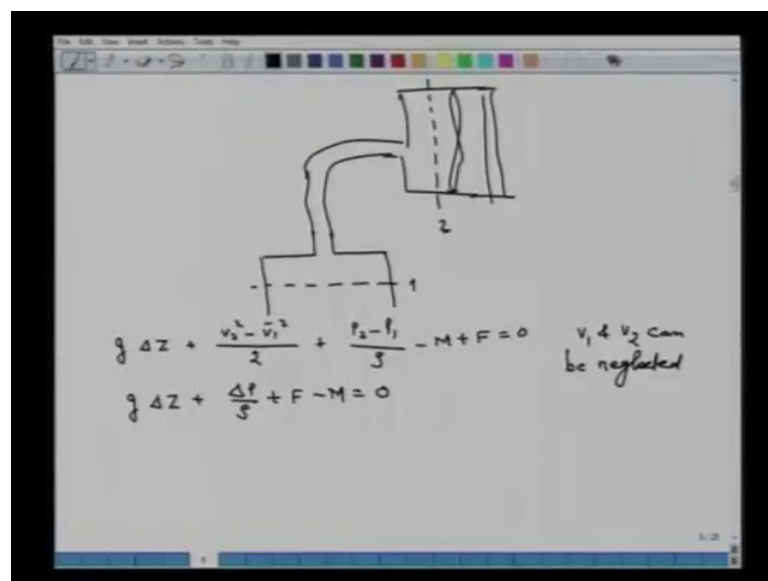 File Edit View Insert Actions Tools Help
2
1
g ΔZ + (v₂² - v̄₁²)/2 + (P₂ - P₁)/ρ - M + F = 0 v₁ & v₂ can
be neglected
g ΔZ + ΔP/ρ + F - M = 0